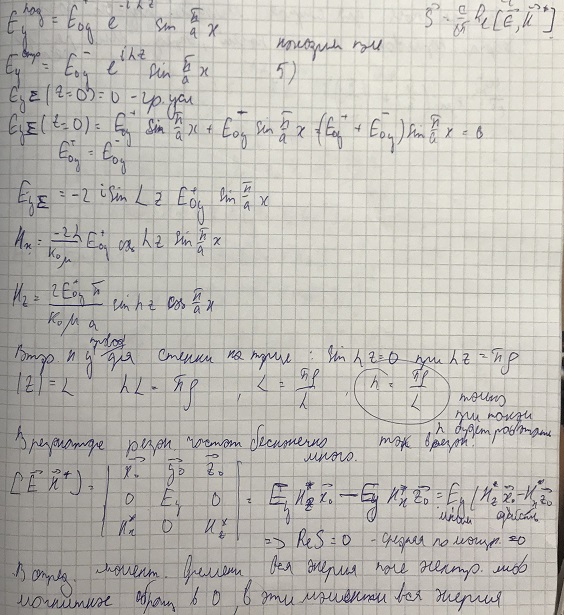 E_y^{пад} = E_{0y}^+ e^{-ihz} sin π/a x
S⃗ = c/8π Re [E⃗, H⃗*]
E_y^{отр} = E_{0y}^- e^{ihz} sin π/a x
5)
E_{yΣ} (z=0) = 0 - гр. усл
E_{yΣ} (z=0) = E_{0y}^+ sin π/a x + E_{0y}^- sin π/a x = (E_{0y}^+ + E_{0y}^-) sin π/a x = 0
E_{0y}^+ = E_{0y}^-
E_{yΣ} = -2 i sin hz E_{0y}^+ sin π/a x
H_x = -2h/k_0μ E_{0y}^+ cos hz sin π/a x
H_z = 2E_{0y}^+ π/k_0μ a sin hz cos π/a x
для стенки на торце : sin hz = 0 при hz = πp
|z| = L hL = πp , L = πp/h , h = πp/L
только
при таком
h будет работать
В резонаторе резон. частот бесконечно много.
[E⃗ H⃗*] = | x⃗_0 y⃗_0 z⃗_0 |
| 0 E_y 0 | = E_y H_z* x⃗_0 - E_y H_x* z⃗_0 = E_y (H_z* x⃗_0 - H_x* z⃗_0
| H_x* 0 H_z* |
=> Re S = 0 - средняя по мощн. = 0
В опред. момент времени вся энергия поле электр. либо
магнитное обращ в 0, в эти моменты вся энергия